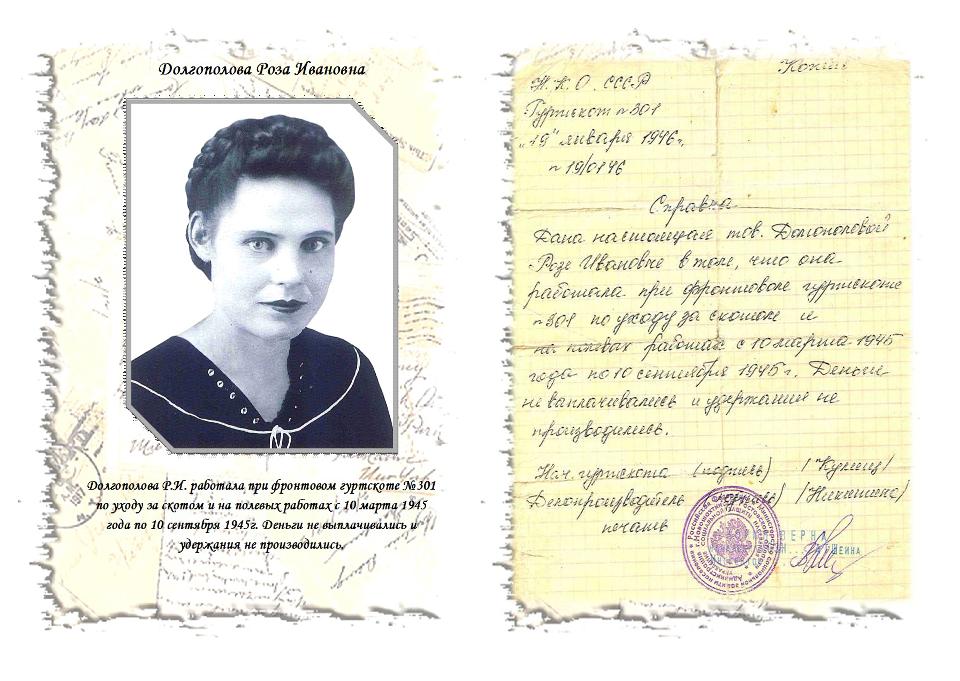 Долгополова Роза Ивановна
Долгополова Р.И. работала при фронтовом гуртскоте №301
по уходу за скотом и на полевых работах с 10 марта 1945
года по 10 сентября 1945г. Деньги не выплачивались и
удержания не производились.
Копия
Н.К.О. СССР
Гуртскот №301
„19" января 1946г.
№ 19/0146
Справка
Дана настоящая тов. Долгополовой
Розе Ивановне в том, что она
работала при фронтовом гуртскоте
№301 по уходу за скотом и
на полевых работах с 10 марта 1945
года по 10 сентября 1945г. Деньги
не выплачивались и удержаний не
производились.
Нач. гуртскота (подпись) /Купниц/
Делопроизводитель (подпись) /Никишина/
печать
ВЕРНА